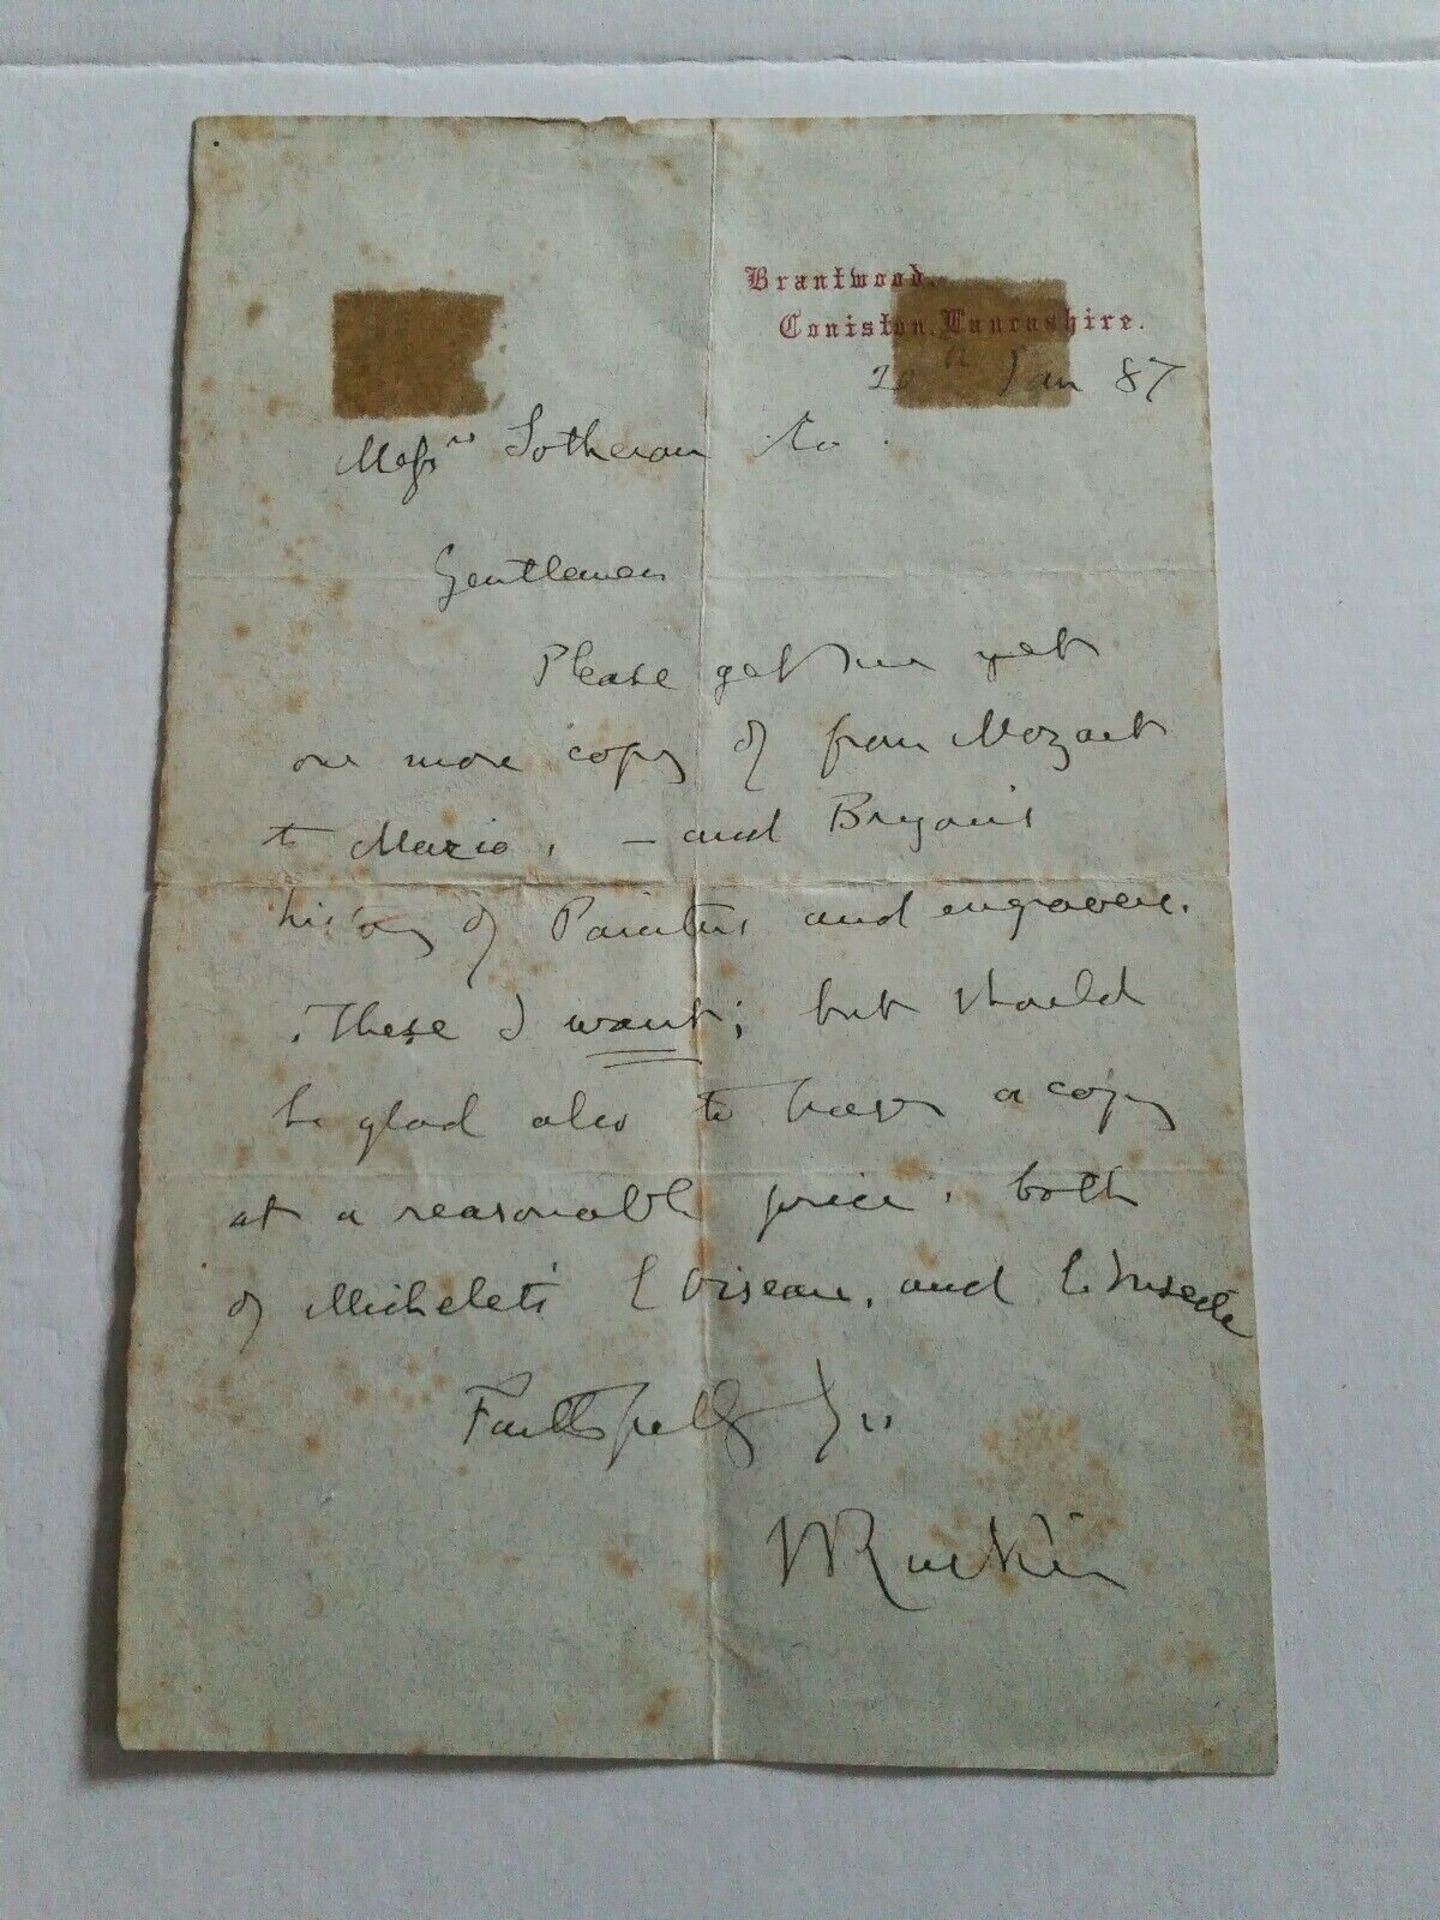 Brantwood,
Coniston, Lancashire.
20th Jan 87
Messrs Sotheran & Co.
Gentlemen
Please get me yet
one more copy of from Mozart
to Mario, – and Bryan's
history of Painters and engravers.
These I want; but should
be glad also to have a copy
at a reasonable price, both
of Michelet's L'Oiseau, and L'Insecte
Faithfully Yrs
JRuskin